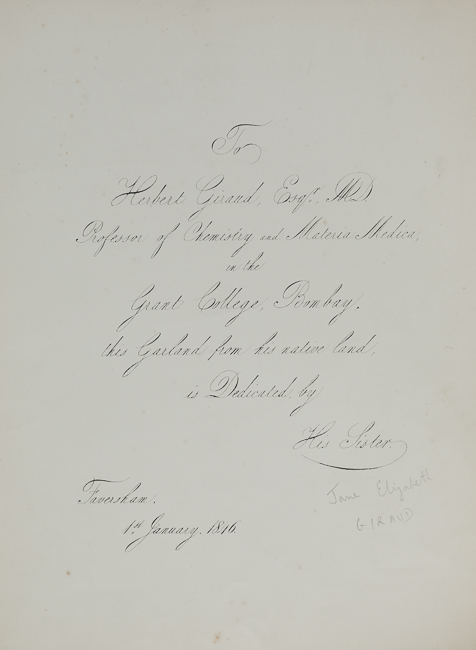 To
Herbert Giraud, Esqr. MD
Professor of Chemistry and Materia Medica,
in the
Grant College, Bombay.
this Garland from his native land,
is Dedicated, by
His Sister.
Jane Elizabeth
GIRAUD
Faversham.
1st January. 1846.